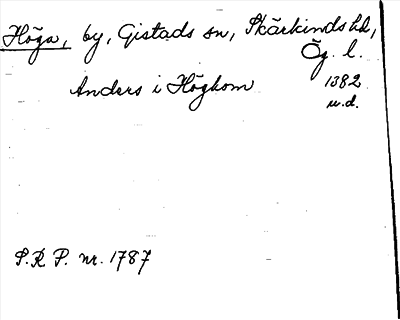 Höga, by, Gistads sn, Skärkinds hd,
Ög. l.
Anders i Höghom 1382
u.d.
S.R.P. nr. 1787